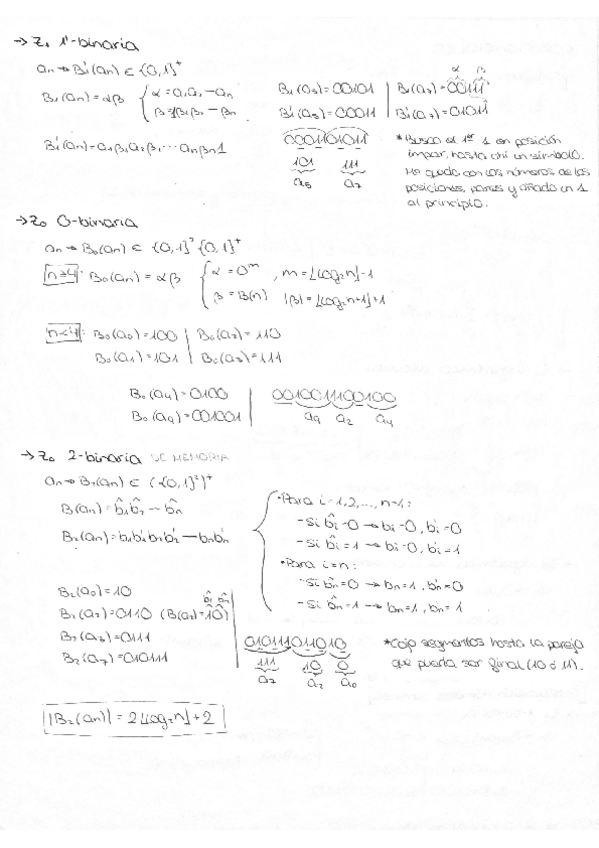 → Z. 1'-binaria
an → B₁'(an) ∈ {0,1}⁺
B₁(an) = αβ { α = a₁a₂ — an
β = β₁β₂ — βn
B₁'(an) = a₁β₁a₂β₂ ··· anβn1
B₁(a₅) = 00101 | B₁(a₇) = 00111
B₁'(a₅) = 00011 | B₁'(a₇) = 01011
α β
000110101 1
101 111
a₅ a₇
* Busco el 1er 1 en posición
impar, hasta ahí un símbolo.
Me quedo con los números de las
posiciones pares y añado un 1
al principio.
→ Z₀ 0-binaria
an → B₀(an) ∈ {0,1}³{0,1}⁺
n≥4: B₀(an) = αβ { α = 0ᵐ , m = ⌊log₂n⌋-1
β = B(n) |β| = ⌊log₂n⌋+1
n<4: B₀(a₀) = 100 | B₀(a₂) = 110
B₀(a₁) = 101 | B₀(a₃) = 111
B₀(a₄) = 0100
B₀(a₉) = 001001
0010011100100
a₉ a₂ a₄
→ Z₀ 2-binaria UC MEMORIA
an → B₂(an) ∈ ({0,1}²)⁺
B(an) = b̂₁b̂₂ — b̂n
B₂(an) = b₁b₁'b₂b₂' — bnbn'
• Para i = 1,2,...,n-1:
- Si b̂i = 0 → bi = 0, bi' = 0
- Si b̂i = 1 → bi = 0, bi' = 1
• Para i = n:
- Si b̂n = 0 → bn = 1, bn' = 0
- Si b̂n = 1 → bn = 1, bn' = 1
B₂(a₀) = 10
B₂(a₂) = 0110 (B(a₂) = 10)
b̂₁ b̂n
B₂(a₃) = 0111
B₂(a₇) = 010111
010111011010
111 10 0
a₇ a₂ a₀
* Cojo segmentos hasta la pareja
que pueda ser final (10 ó 11).
|B₂(an)| = 2⌊log₂n⌋+2